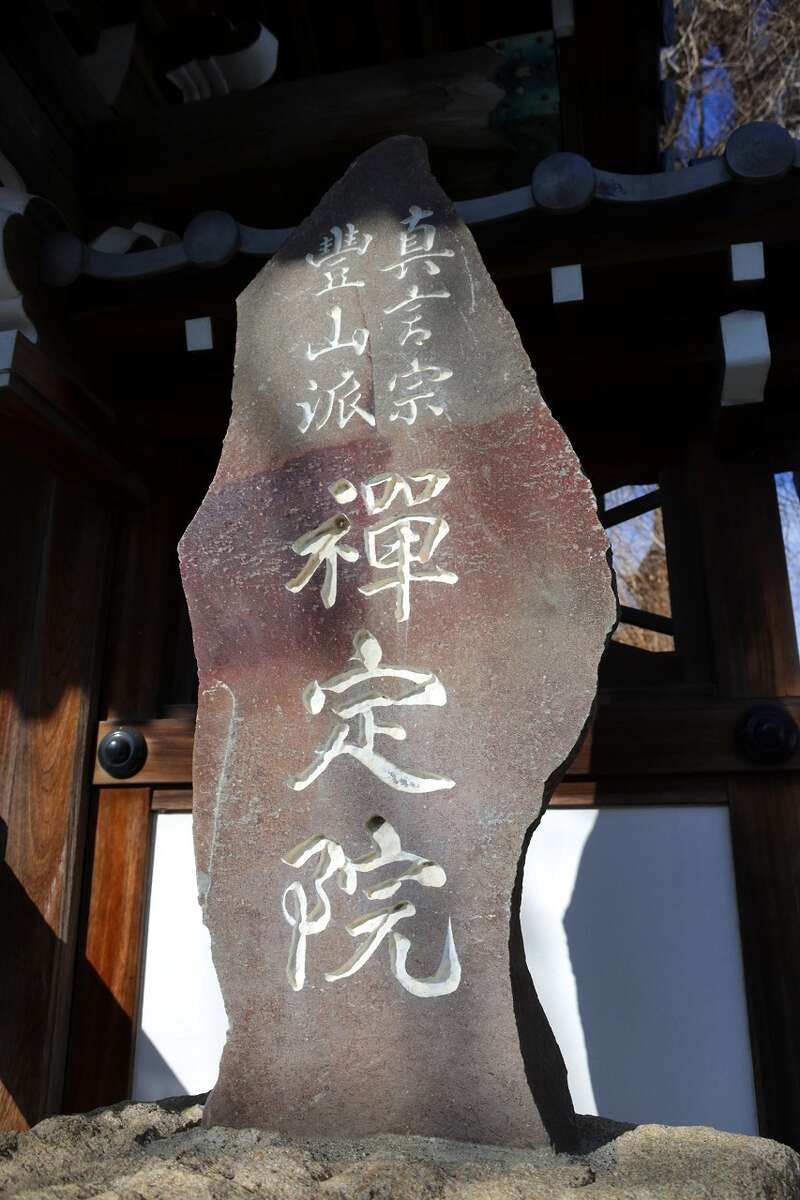 真言宗
豐山派
禪定院